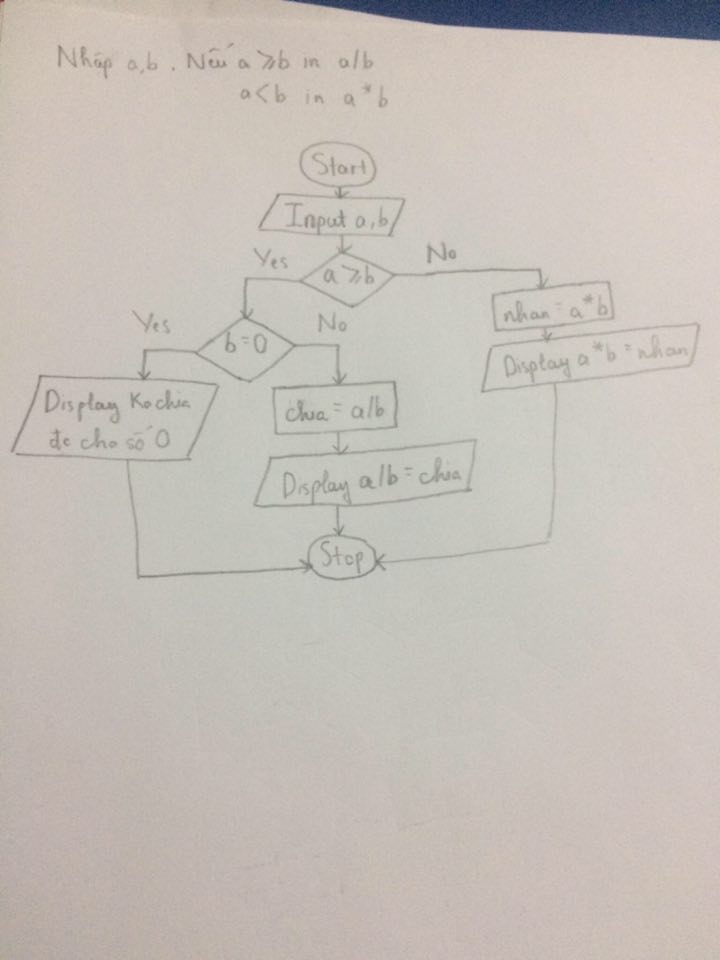 Nhập a,b. Nếu a ≥ b in a/b
a < b in a * b
Start
Input a,b
Yes
a ≥ b
No
nhan = a * b
Display a * b = nhan
Yes
b = 0
No
Display Ko chia
đc cho số 0
chia = a/b
Display a/b = chia
Stop